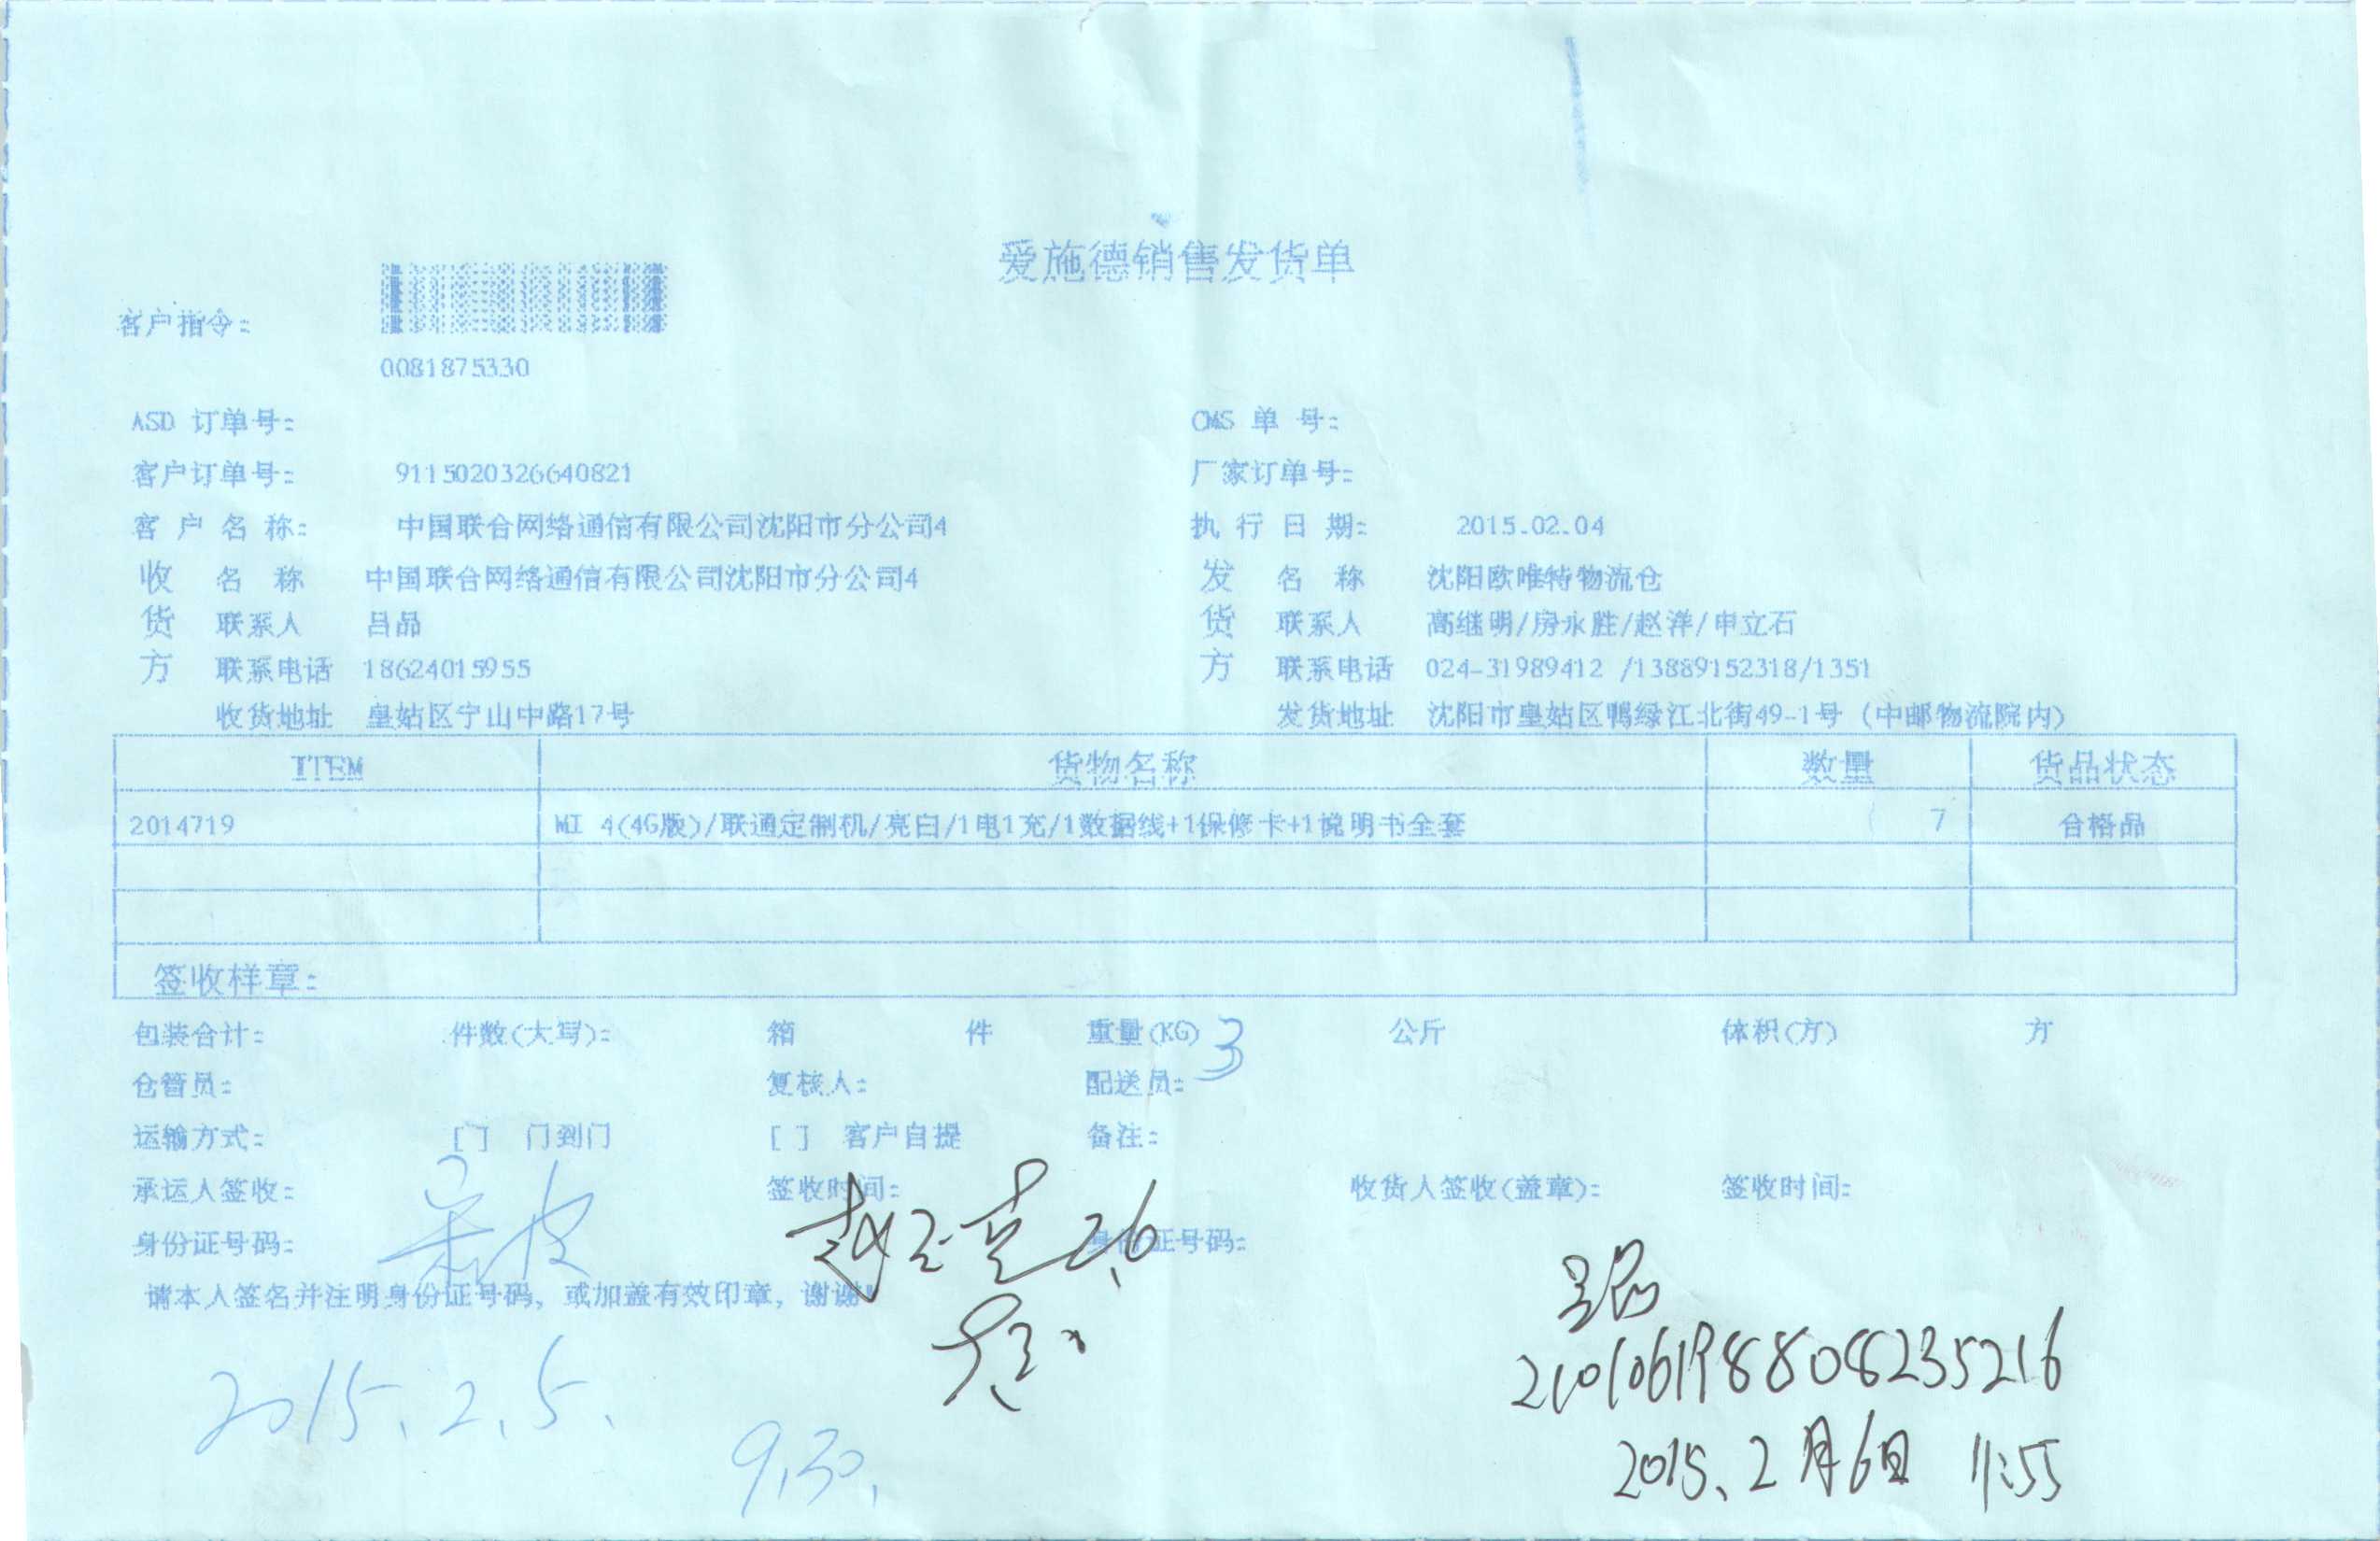 爱施德销售发货单
客户指令:
0081875330
ASD 订单号: CMS 单 号:
客户订单号: 9115020326640821 厂家订单号:
客 户 名 称: 中国联合网络通信有限公司沈阳市分公司4 执 行 日 期: 2015.02.04
收 名 称 中国联合网络通信有限公司沈阳市分公司4 发 名 称 沈阳欧唯特物流仓
货 联系人 吕品 货 联系人 高继明/房永胜/赵洋/申立石
方 联系电话 18624015955 方 联系电话 024-31989412 /13889152318/1351
收货地址 皇姑区宁山中路17号 发货地址 沈阳市皇姑区鸭绿江北街49-1号 (中邮物流院内)
ITEM 货物名称 数量 货品状态
2014719 MI 4(4G版)/联通定制机/亮白/1电1充/1数据线+1保修卡+1说明书全套 7 合格品
签收样章:
包装合计: 件数(大写): 箱 件 重量(KG) 3 公斤 体积(方) 方
仓管员: 复核人: 配送员:
运输方式: [ ] 门到门 [ ] 客户自提 备注:
承运人签收: 签收时间: 收货人签收(盖章): 签收时间:
身份证号码: 2.6 身份证号码:
请本人签名并注明身份证号码, 或加盖有效印章, 谢谢!
吕品
210106198808235216
2015.2.5. 9.30.
2015.2月6日 11:55